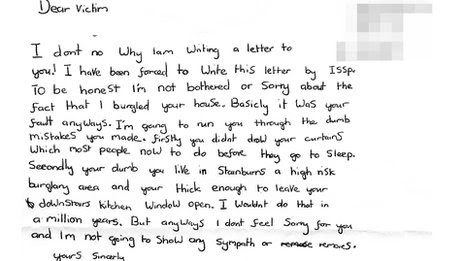 Dear Victim
I dont no Why Iam Writing a letter to
you! I have been forced to Write this letter by ISSP.
To be honest I'm not bothered or Sorry about the
fact that I burgled your house. Basicly it was your
fault anyways. I'm going to run you through the dumb
mistakes you made. firstly you didnt drow your curtains
Which most people now to do before they go to Sleep.
Secondly your dumb you live in Stainburns a high risk
burglary area and your thick enough to leave your
downstairs kitchen window open. I Wouldnt do that in
a million years. But anyways I dont feel Sorry for you
and Im not going to Show any Sympath or remores.
yours Sincerly